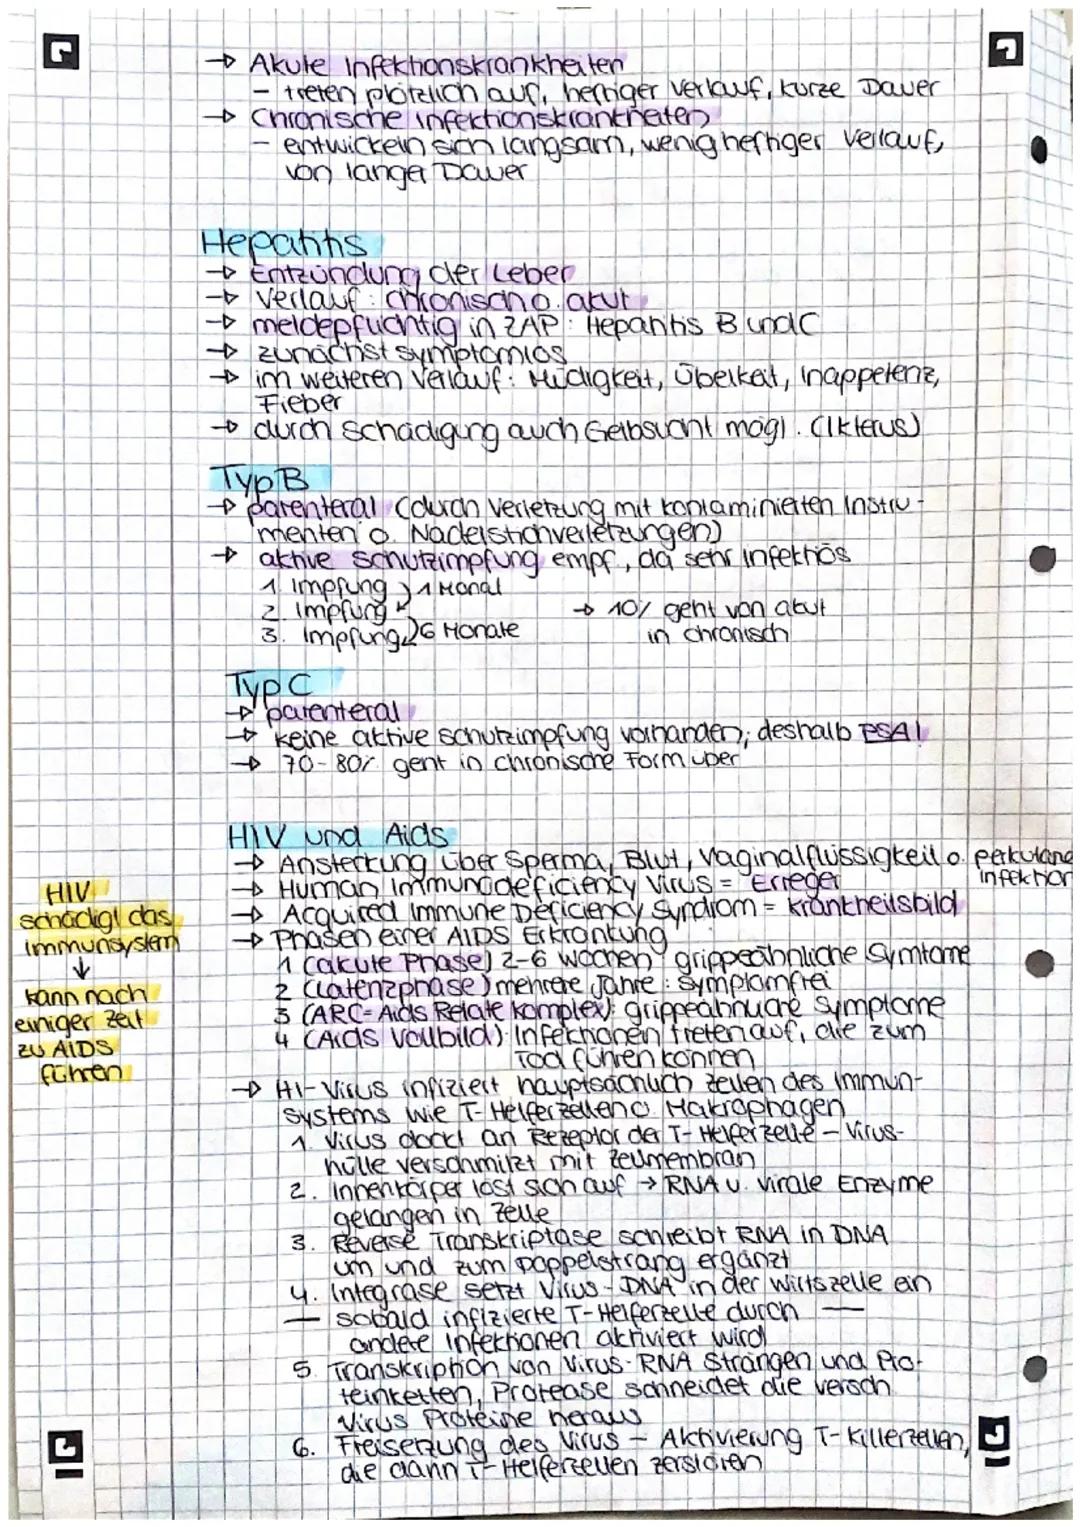 → Akute Infektionskrankheiten
- treten plötzlich auf, heftiger Verlauf, kurze Dauer
→ Chronische Infektionskrankheiten
- entwickeln sich langsam, wenig heftiger Verlauf,
von langer Dauer
Hepatitis
→ Entzündung der Leber
→ Verlauf: chronisch o. akut
→ meldepflichtig in ZAP: Hepatitis B und C
→ zunächst symptomlos
→ im weiteren Verlauf: Müdigkeit, Übelkeit, Inappetenz,
Fieber
→ durch Schädigung auch Gelbsucht mögl. (Ikterus)
Typ B
→ parenteral (durch Verletzung mit kontaminierten Instru-
menten o. Nadelstichverletzungen)
→ aktive Schutzimpfung empf., da sehr infektiös
1. Impfung } 1 Monat
2. Impfung
→ 10% geht von akut
3. Impfung } 6 Monate
in chronisch
Typ C
→ parenteral
→ keine aktive Schutzimpfung vorhanden; deshalb PSA!
→ 70-80% geht in chronische Form über
HIV und Aids
→ Ansteckung über Sperma, Blut, Vaginalflüssigkeit o. perkutane
Infektion
→ Human Immunodeficiency Virus = Erreger
→ Acquired Immune Deficiency Syndrom = Krankheitsbild
→ Phasen einer AIDS Erkrankung
1 (akute Phase) 2-6 Wochen grippeähnliche Symtome
2 (Latenzphase) mehrere Jahre: symptomfrei
3 (ARC= Aids Relate Komplex): grippeähnliche Symptome
4 (Aids Vollbild): Infektionen treten auf, die zum
Tod führen können
HIV
schädigt das
Immunsystem
↓
kann nach
einiger Zeit
zu AIDS
führen
→ HI-Virus infiziert hauptsächlich Zellen des Immun-
systems wie T-Helferzellen o. Makrophagen
1. Virus dockt an Rezeptor der T-Helferzelle - Virus-
hülle verschmilzt mit Zellmembran
2. Innenkörper löst sich auf → RNA u. virale Enzyme
gelangen in Zelle
3. Reverse Transkriptase schreibt RNA in DNA
um und zum Doppelstrang ergänzt
4. Integrase setzt Virus-DNA in der Wirtszelle ein
— sobald infizierte T-Helferzelle durch —
andere Infektionen aktiviert wird
5. Transkription von Virus-RNA Strängen und Pro-
teinketten, Protease schneidet die versch.
Virus Proteine heraus
6. Freisetzung des Virus - Aktivierung T-Killerzellen,
die dann T-Helferzellen zerstören